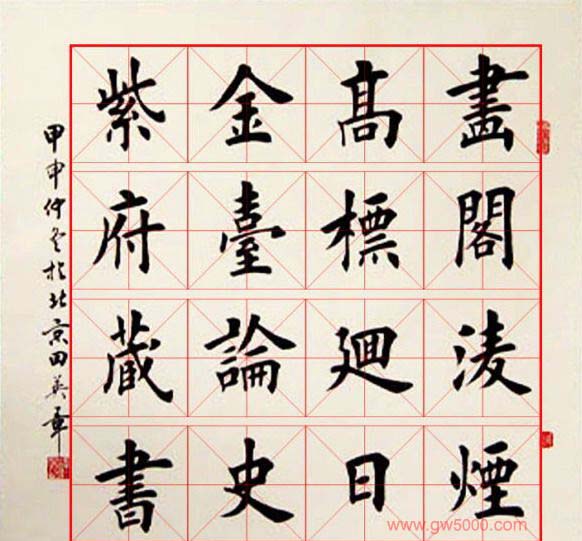 畫閣淩煙
髙標廻日
金臺論史
紫府藏書
甲申仲冬於北京田英章
www.gw5000.com